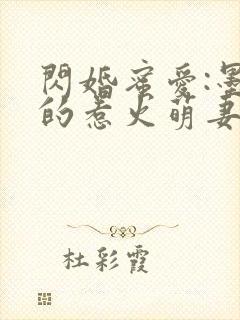 閃婚蜜愛:墨
的惹火萌妻
杜彩霞